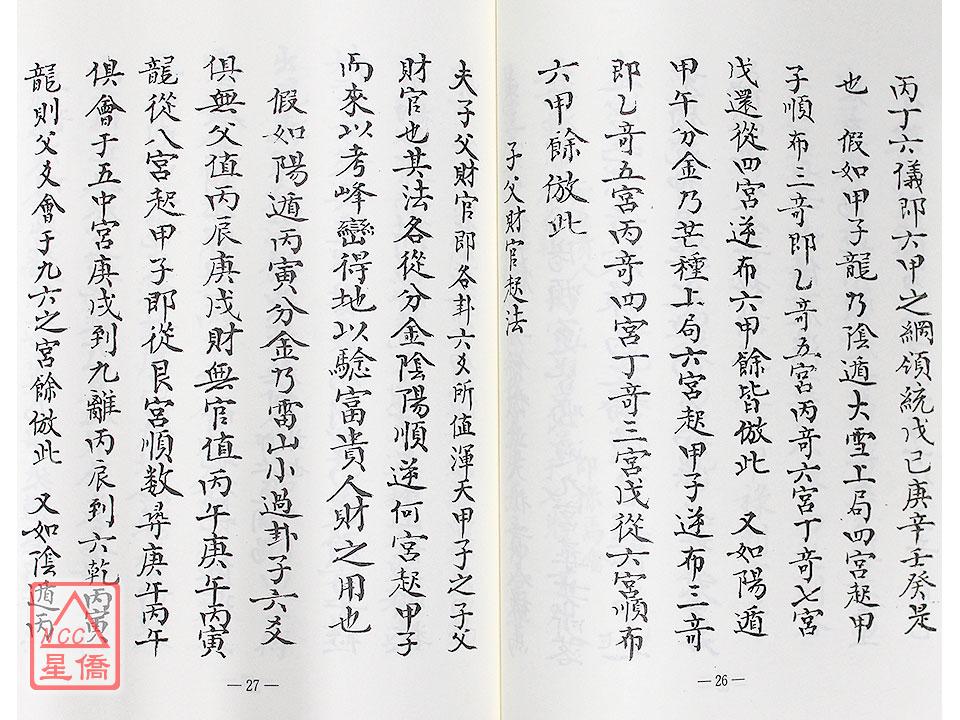 丙丁六儀即六甲之綱領統戊己庚辛壬癸是
也　假如甲子龍乃陰遁大雪上局四宮起甲
子順布三奇即乙奇五宮丙奇六宮丁奇七宮
戊還從四宮逆布六甲餘皆倣此　又如陽遁
甲午分金乃芒種上局六宮起甲子逆布三奇
即乙奇五宮丙奇四宮丁奇三宮戊從六宮順布
六甲餘倣此
子父財官起法
夫子父財官即各卦六爻所值渾天甲子之子父
財官也其法各從分金陰陽順逆何宮起甲子
而來以考峰巒得地以驗富貴人財之用也
假如陽遁丙寅分金乃雷山小過卦子六爻
俱無父值丙辰庚戌財無官值丙午庚午丙寅
龍從八宮起甲子即從艮宮順数尋庚午丙午
俱會于五中宮庚戌到九離丙辰到六乾丙寅
龍則父爻會于九六之宮餘倣此　又如陰遁丙
—27—
—26—
NCC
星僑